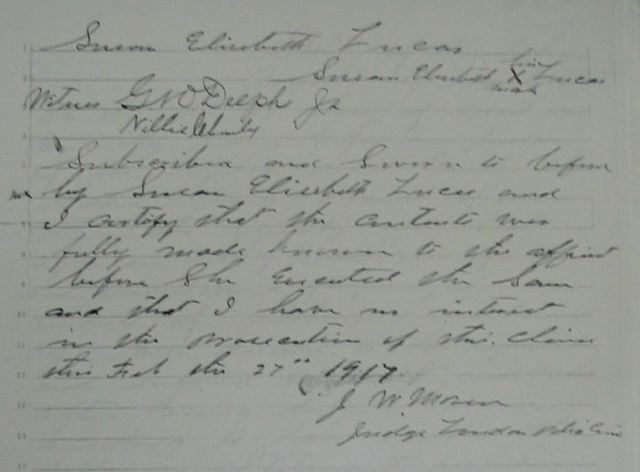 Susan Elizabeth Lucas
her
Susan Elizabeth X Lucas
mark
Witness G W Deeph Jr
Nellie
Subscribed and Sworn to before
me by Susan Elizabeth Lucas and
I certify that the contents was
fully made known to the affiant
before She Executed the Same
and that I have no interest
in the prosecution of this Claim
this Feb the 27th 1917
J W Moren
Judge